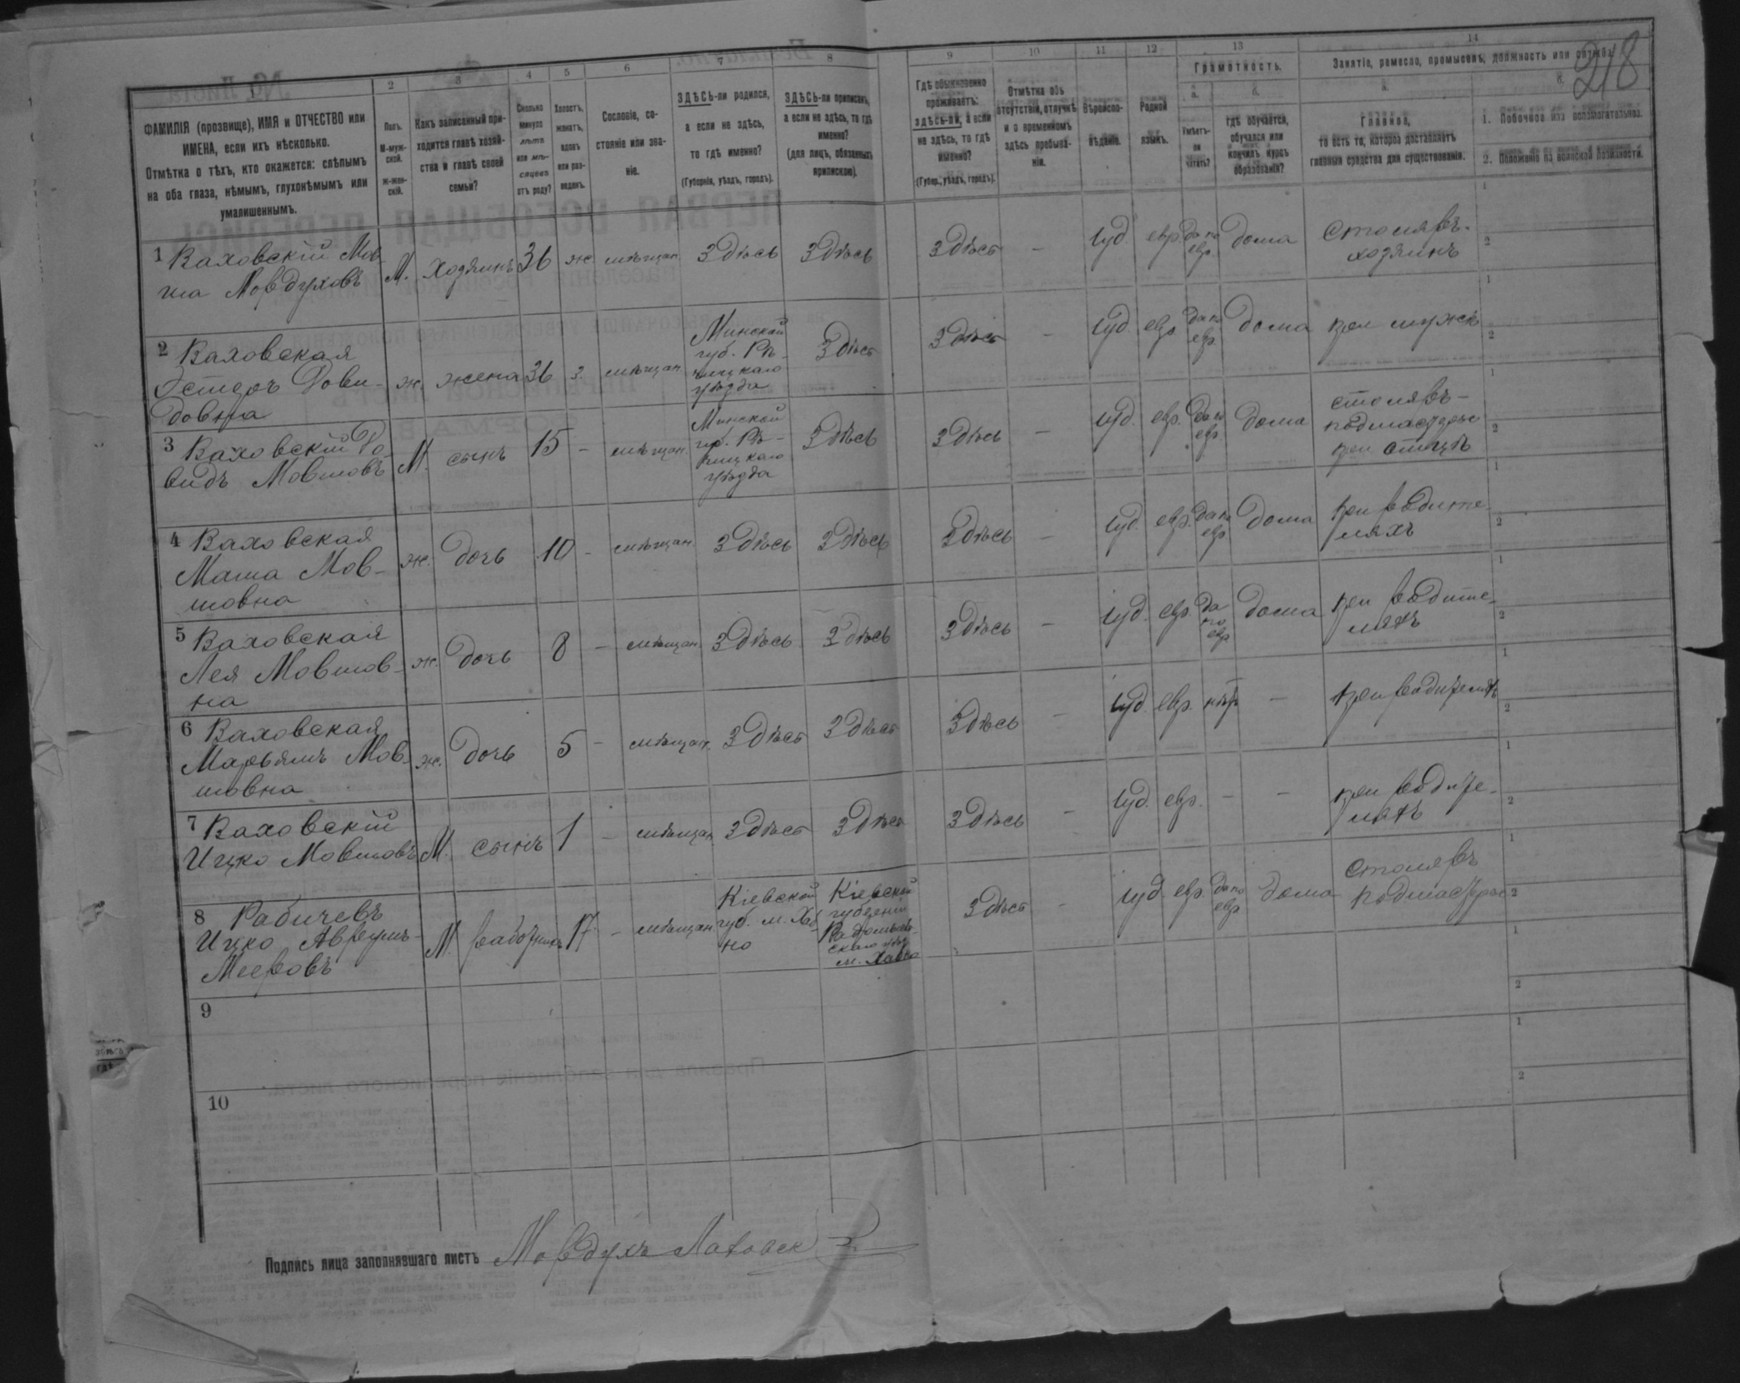 218
2 3 4 5 6 7 8 9 10 11 12 13 14
ФАМИЛІЯ (прозвище), ИМЯ и ОТЧЕСТВО или
ИМЕНА, если ихъ нѣсколько.
Отмѣтка о тѣхъ, кто окажется: слѣпымъ
на оба глаза, нѣмымъ, глухонѣмымъ или
умалишеннымъ.
Полъ.
М-муж-
ской.
Ж-жен-
скій.
Какъ записанный при-
ходится главѣ хозяй-
ства и главѣ своей
семьи?
Сколько
минуло
лѣтъ
или мѣ-
сяцевъ
отъ роду?
Холостъ,
женатъ,
вдовъ
или раз-
веденъ.
Сословіе, со-
стояніе или зва-
ніе.
ЗДѢСЬ-ли родился,
а если не здѣсь,
то гдѣ именно?
(Губернія, уѣздъ, городъ).
ЗДѢСЬ-ли приписанъ,
а если не здѣсь, то гдѣ
именно?
(для лицъ, обязанныхъ
припискою).
Гдѣ обыкновенно
проживаетъ:
здѣсь-ли, а если
не здѣсь, то гдѣ
именно?
(Губер., уѣздъ, городъ).
Отмѣтка объ
отсутствіи, отлучкѣ
и о временномъ
здѣсь пребыва-
ніи.
Вѣроиспо-
вѣданіе.
Родной
языкъ.
Грамотность.
а. б.
Умѣетъ-
ли
читать?
гдѣ обучается,
обучался или
кончилъ курсъ
образованія?
Занятіе, ремесло, промыселъ, должность или служба.
Главное,
то есть то, которое доставляетъ
главныя средства для существованія.
1. Побочное или вспомогательное.
2. Положеніе по воинской повинности.
1 Ваховскій Мов
ша Мовдуховъ М. хозяинъ 36 ж мѣщан здѣсь здѣсь здѣсь – Іуд евр да по евр дома столяръ-
хозяинъ
2 Ваховская
Эстеръ Дови-
довна ж. жена 36 з. мѣщан Минской
губ. Рѣ-
чицкаго
уѣзда здѣсь здѣсь – Іуд. евр. да по евр дома при мужѣ
3 Ваховскій До-
видъ Мовшовъ М. сынъ 15 – мѣщан. Минской
губ. Рѣ-
чицкаго
уѣзда здѣсь здѣсь – Іуд. евр. да по евр дома столяръ-
подмастерье
при отцѣ
4 Ваховская
Маша Мов-
шовна ж. дочь 10 – мѣщан. здѣсь здѣсь здѣсь – Іуд. евр. да по евр дома при родите-
ляхъ
5 Ваховская
Лея Мовшов-
на ж. дочь 8 – мѣщан. здѣсь здѣсь здѣсь – Іуд. евр да по евр дома при родите-
ляхъ
6 Ваховская
Марьямъ Мов-
шовна ж. дочь 5 – мѣщан. здѣсь здѣсь здѣсь – Іуд. евр. нѣт – при родителяхъ
7 Ваховскій
Ицко Мовшовъ М. сынъ 1 – мѣщан здѣсь здѣсь здѣсь – Іуд. евр. – – при родите-
ляхъ
8 Рабичевъ
Ицко Аврумъ-
Мееровъ М. работникъ 17 – мѣщан Кіевской
губ. м. Хаб
но Кіевской
губерніи
Радомысль-
скаго уѣз
м. Хабно здѣсь – Іуд. евр. да по евр дома столяръ
подмастерье
9
10
Подпись лица заполнявшаго листъ Мовдухъ